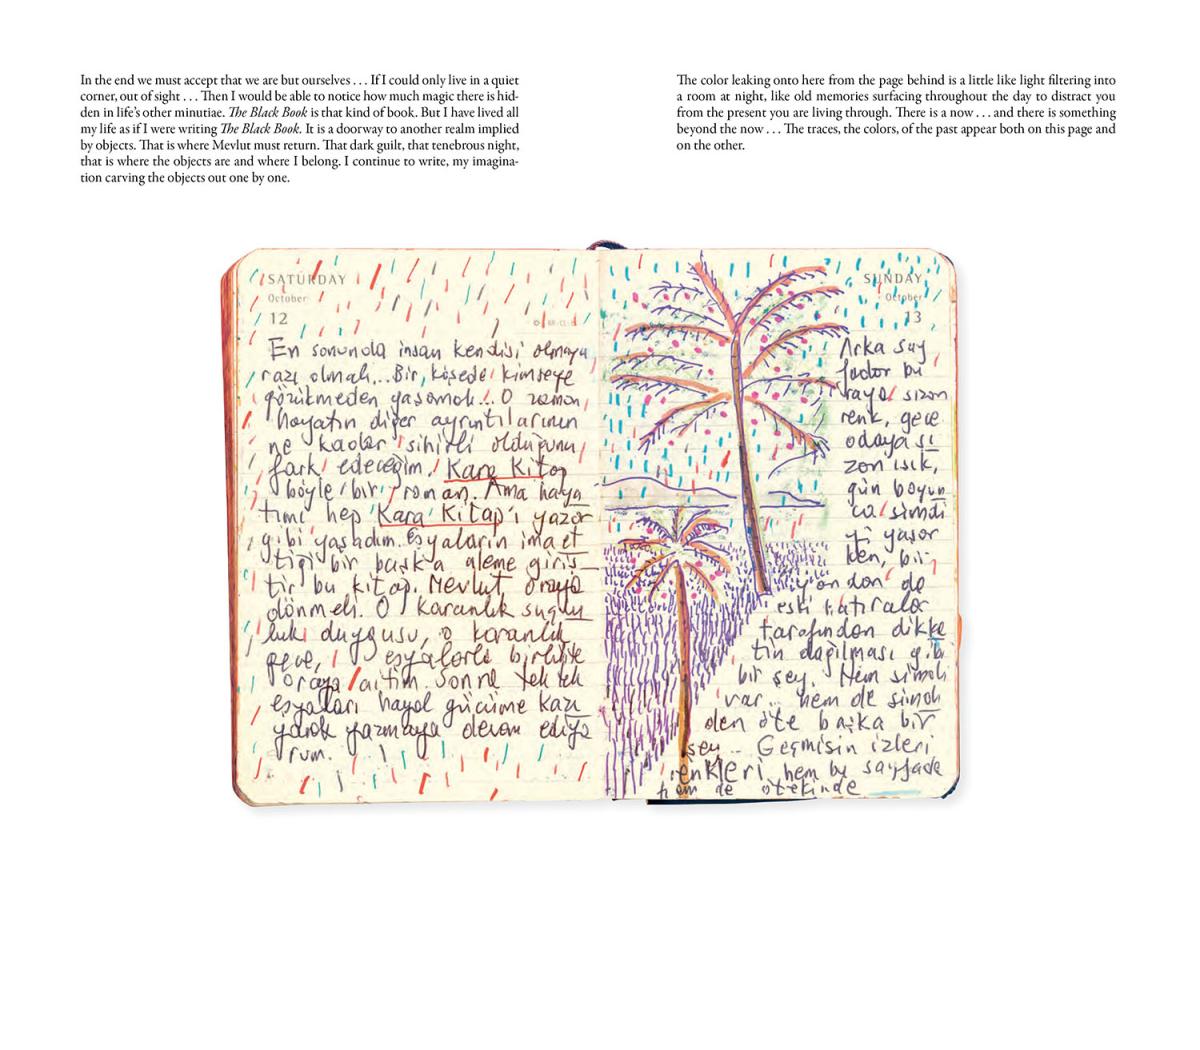 In the end we must accept that we are but ourselves . . . If I could only live in a quiet
corner, out of sight . . . Then I would be able to notice how much magic there is hid-
den in life’s other minutiae. The Black Book is that kind of book. But I have lived all
my life as if I were writing The Black Book. It is a doorway to another realm implied
by objects. That is where Mevlut must return. That dark guilt, that tenebrous night,
that is where the objects are and where I belong. I continue to write, my imagina-
tion carving the objects out one by one.
The color leaking onto here from the page behind is a little like light filtering into
a room at night, like old memories surfacing throughout the day to distract you
from the present you are living through. There is a now . . . and there is something
beyond the now . . . The traces, the colors, of the past appear both on this page and
on the other.
SATURDAY
October
12
En sonunda insan kendisi olmaya
razı olmalı... Bir köşede kimseye
gözükmeden yaşamak... O zaman
hayatın diğer ayrıntılarının
ne kadar sihirli olduğunu
fark edeceğim. Kara Kitap
böyle bir roman. Ama haya
tımı hep Kara Kitap'ı yazar
gibi yaşadım. Eşyaların ima et
tiği bir başka aleme giriş
tir bu kitap. Mevlut oraya
dönmeli. O karanlık suçlu
luk duygusu, o karanlık
gece, eşyalarla birlikte
oraya aitim. Sonra tek tek
eşyaları hayal gücüme kazı
yarak yazmaya devam ediyo
rum.
SUNDAY
October
13
Arka say
fadan bu
raya sızan
renk, gece
odaya sı
zan ışık,
gün boyun
ca şimdi
yi yaşar
ken, bir
yandan da
eski hatıralar
tarafından dikka
tin dağılması gibi
bir şey. Hem şimdi
var... hem de şimdi
den öte başka bir
şey... Geçmişin izleri
renkleri hem bu sayfada
hem de ötekinde